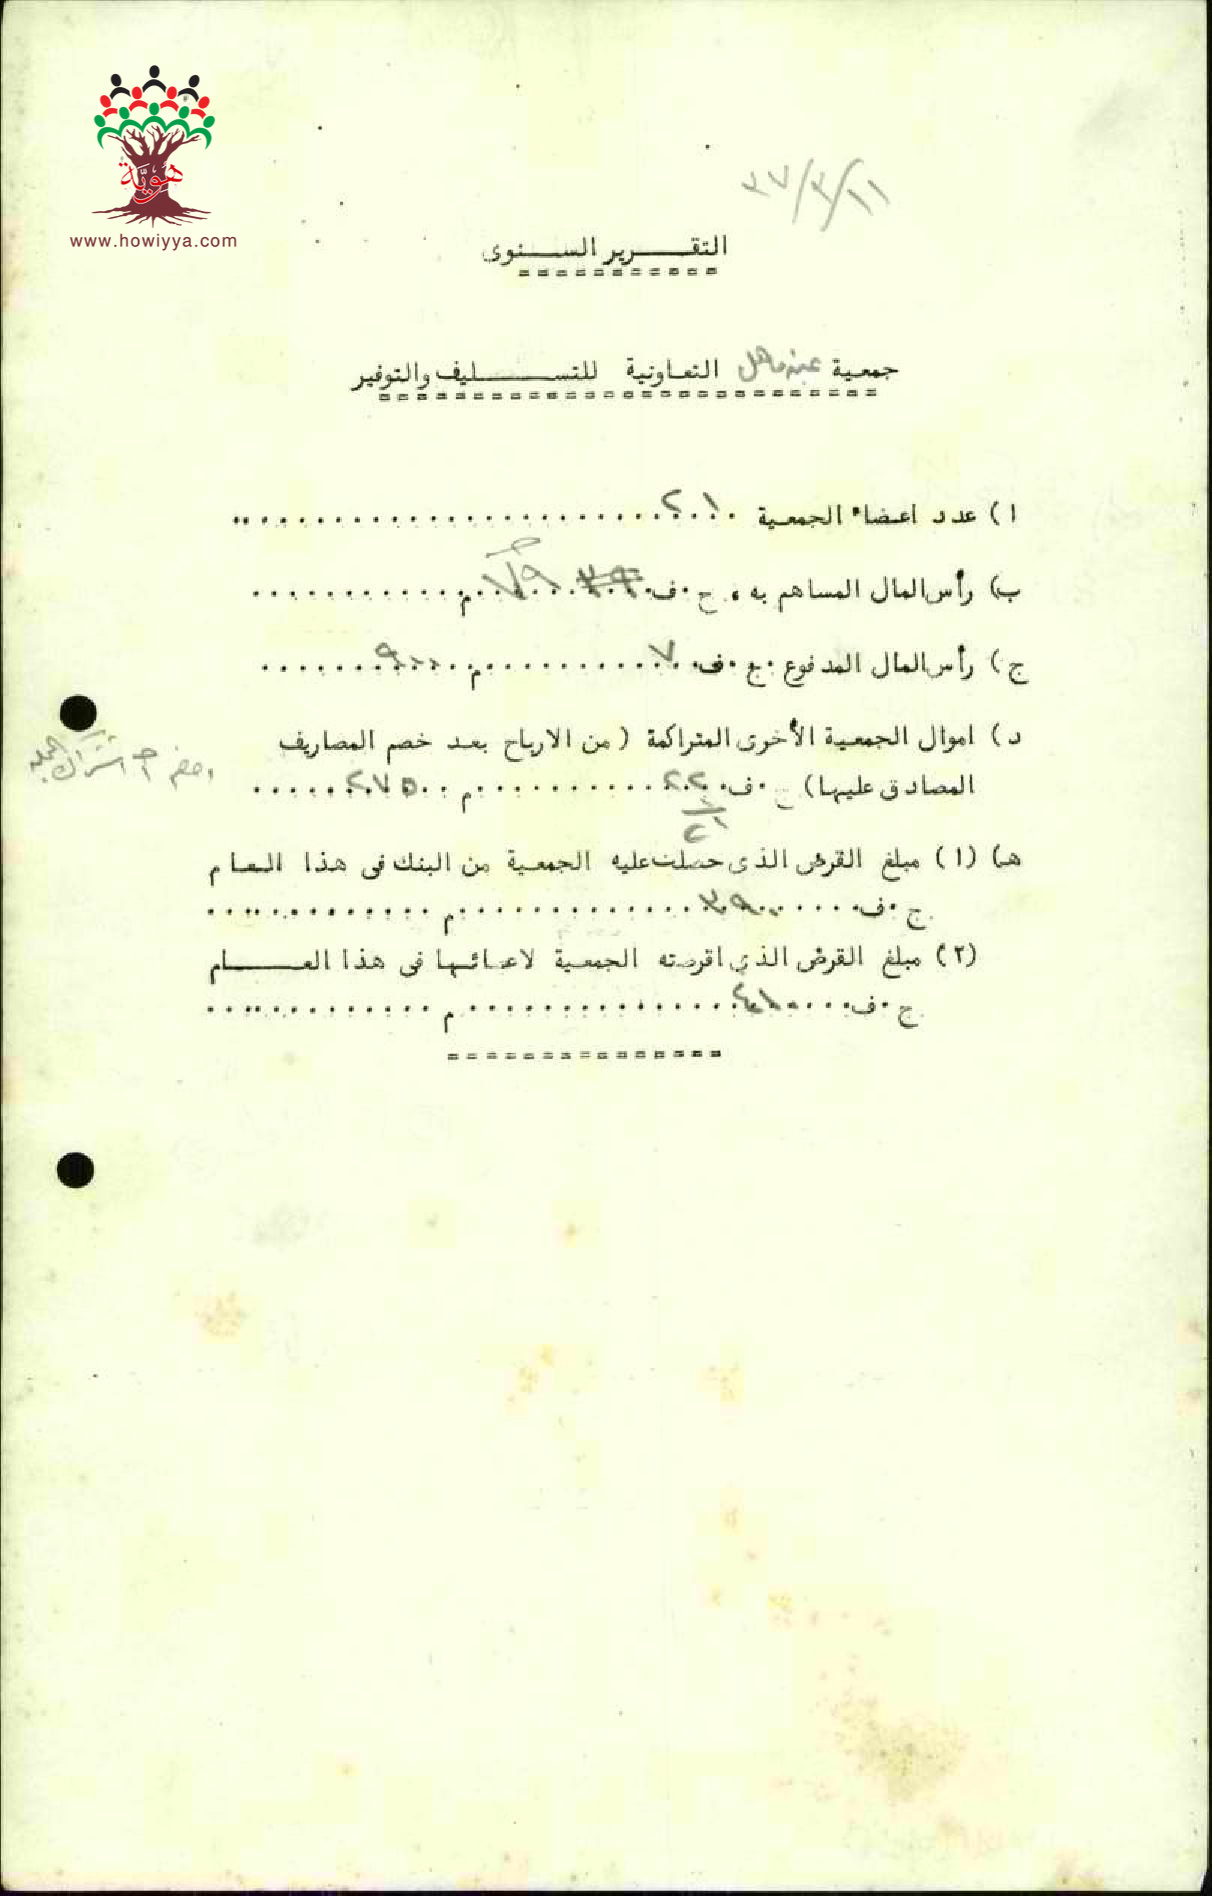 هوية
www.howiyya.com
٣٧/٣/١١
التقـــرير الســـنوى
جمعية عين ماهل التعاونية للتســـــليف والتوفير
ا) عدد اعضاء الجمعية ٢١
ب) رأس المال المساهم به، ج.ف. ٣٩ ٧٩ م
ج) رأس المال المدفوع ج.ف. ٧ م ٩٠٠
د) اموال الجمعية الأخرى المتراكمة (من الارباح بعد خصم المصاريف
المصادق عليها) ج.ف. ٢٢ م ٢٧٥
اشتراك المجلة
٢١
هـ) (١) مبلغ القرض الذى حصلت عليه الجمعية من البنك فى هذا العام
ج.ف. ٣٩٠ م
(٢) مبلغ القرض الذى اقرضته الجمعية لاعضائها فى هذا العـــــام
ج.ف. ٤١٠ م